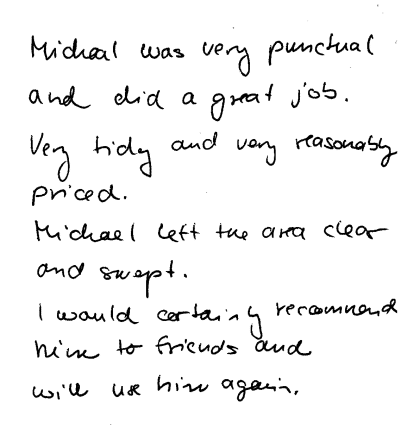 Michael was very punctual
and did a great job.
Very tidy and very reasonably
priced.
Michael left the area clear
and swept.
I would certainly recommend
him to friends and
will use him again.